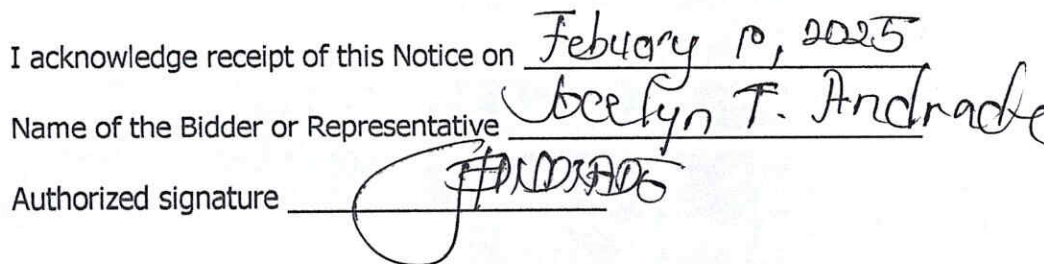 I acknowledge receipt of this Notice on Febuary 10, 2025
Name of the Bidder or Representative Jocelyn T. Andrade
Authorized signature JANDRADE